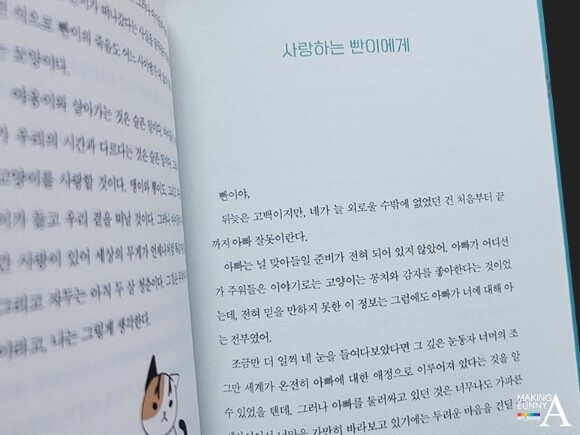 식으로 빤이의 죽음도 어느 사이엔가
는 모양이다.
야옹이와 살아가는 것은 슬픈 일이다.
가 우리의 시간과 다르다는 것은 슬픈 일이다.
고양이를 사랑할 것이다.
이가 늙고 우리 곁을 떠날 것이다. 그러나
사랑이 있어 세상의 무게가 언제나처럼
그리고 자두는 아직 두 살 청춘이다.
이라고, 나는 그렇게 생각한다.
사랑하는 빤이에게
빤이야,
뒤늦은 고백이지만, 네가 늘 외로울 수밖에 없었던 건 처음부터 끝
까지 아빠 잘못이란다.
아빠는 널 맞아들일 준비가 전혀 되어 있지 않았어. 아빠가 어디선
가 주워들은 이야기로는 고양이는 꽁치와 감자를 좋아한다는 것이었
는데, 전혀 믿을 만하지 못한 이 정보는 그럼에도 아빠가 너에 대해 아
는 전부였어.
조금만 더 일찍 네 눈을 들여다보았다면 그 깊은 눈동자 너머의 조
그만 세계가 온전히 아빠에 대한 애정으로 이루어져 있다는 것을 알
수 있었을 텐데. 그러나 아빠를 둘러싸고 있던 것은 너무나도 가파른
너만을 가만히 바라보고 있기에는 두려운 마음을 견딜
MAKING
BUNNY
A